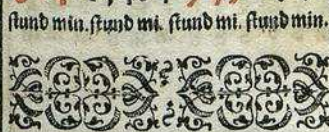 stund min. stund mi. stund mi. stund min.